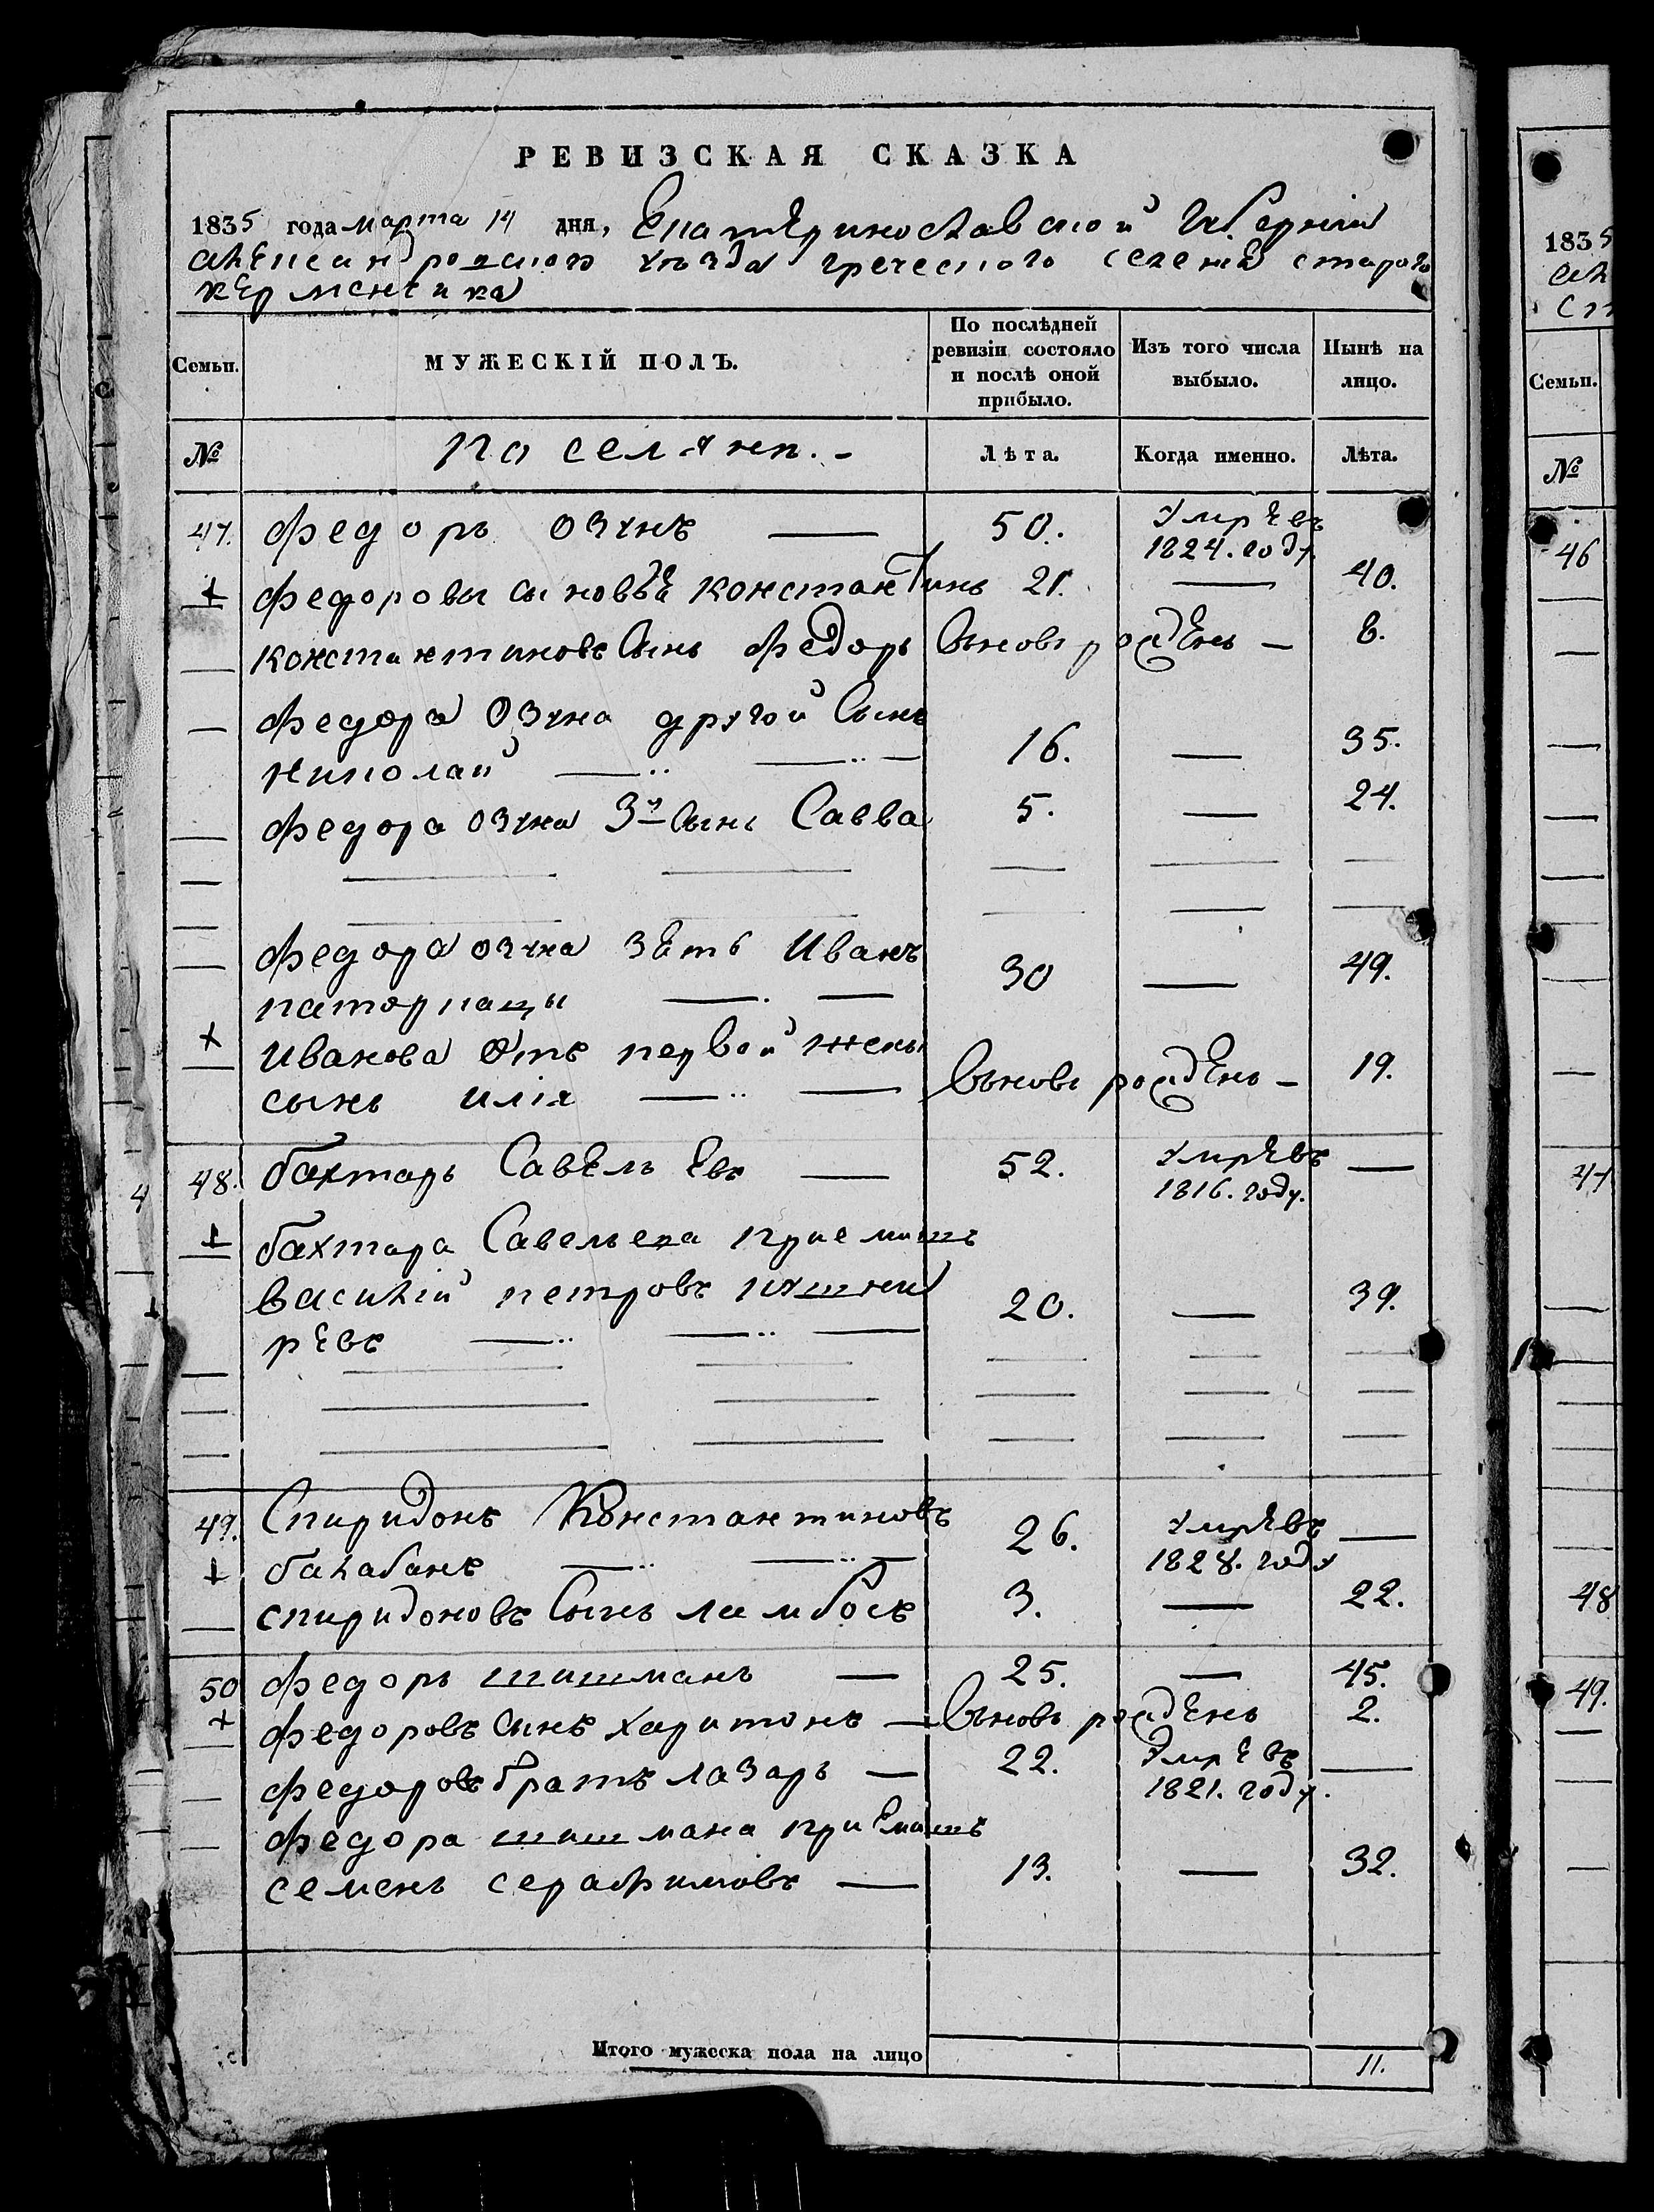 РЕВИЗСКАЯ СКАЗКА
1835 года марта 14 дня, Екатеринославской Губернии
александровского уезда греческого селения старого
керменчика
Семьи.
МУЖЕСКІЙ ПОЛЪ.
По послѣдней ревизіи состояло и послѣ оной прибыло.
Изъ того числа выбыло.
Нынѣ на лицо.
№
поселяне.
Лѣта.
Когда именно.
Лѣта.
47. федоръ озунъ — 50. умре въ 1824. году.
федоровы сыновъе константинъ 21. — 40.
константиновъ сынъ федоръ вновь рожденъ — 8.
федора озуна другой сынъ
николай — 16. — 35.
федора озуна 3й сынъ Савва 5. — 24.
федора озуна зеть Иванъ
30 — 49.
иванова отъ первой жены
сынъ илія — вновь рожденъ — 19.
48. бахтаръ Савельевъ — 52. умре въ 1816. году. —
бахтара Савельева приемишъ
василий петровъ кушни
ревъ — 20. — 39.
49. Спиридонъ Константиновъ
балабанъ — 26. умре въ 1828. году —
спиридоновъ сынъ ламбосъ 3. — 22.
50 федоръ шишманъ — 25. — 45.
федоровъ сынъ харитонъ — вновь рожденъ 2.
федоровъ братъ лазарь — 22. умре въ 1821. году. —
федора шишмана приемишъ
семенъ серафимовъ — 13. — 32.
Итого мужеска пола на лицо 11.
1835
Семьи.
№
46
47
48
49.